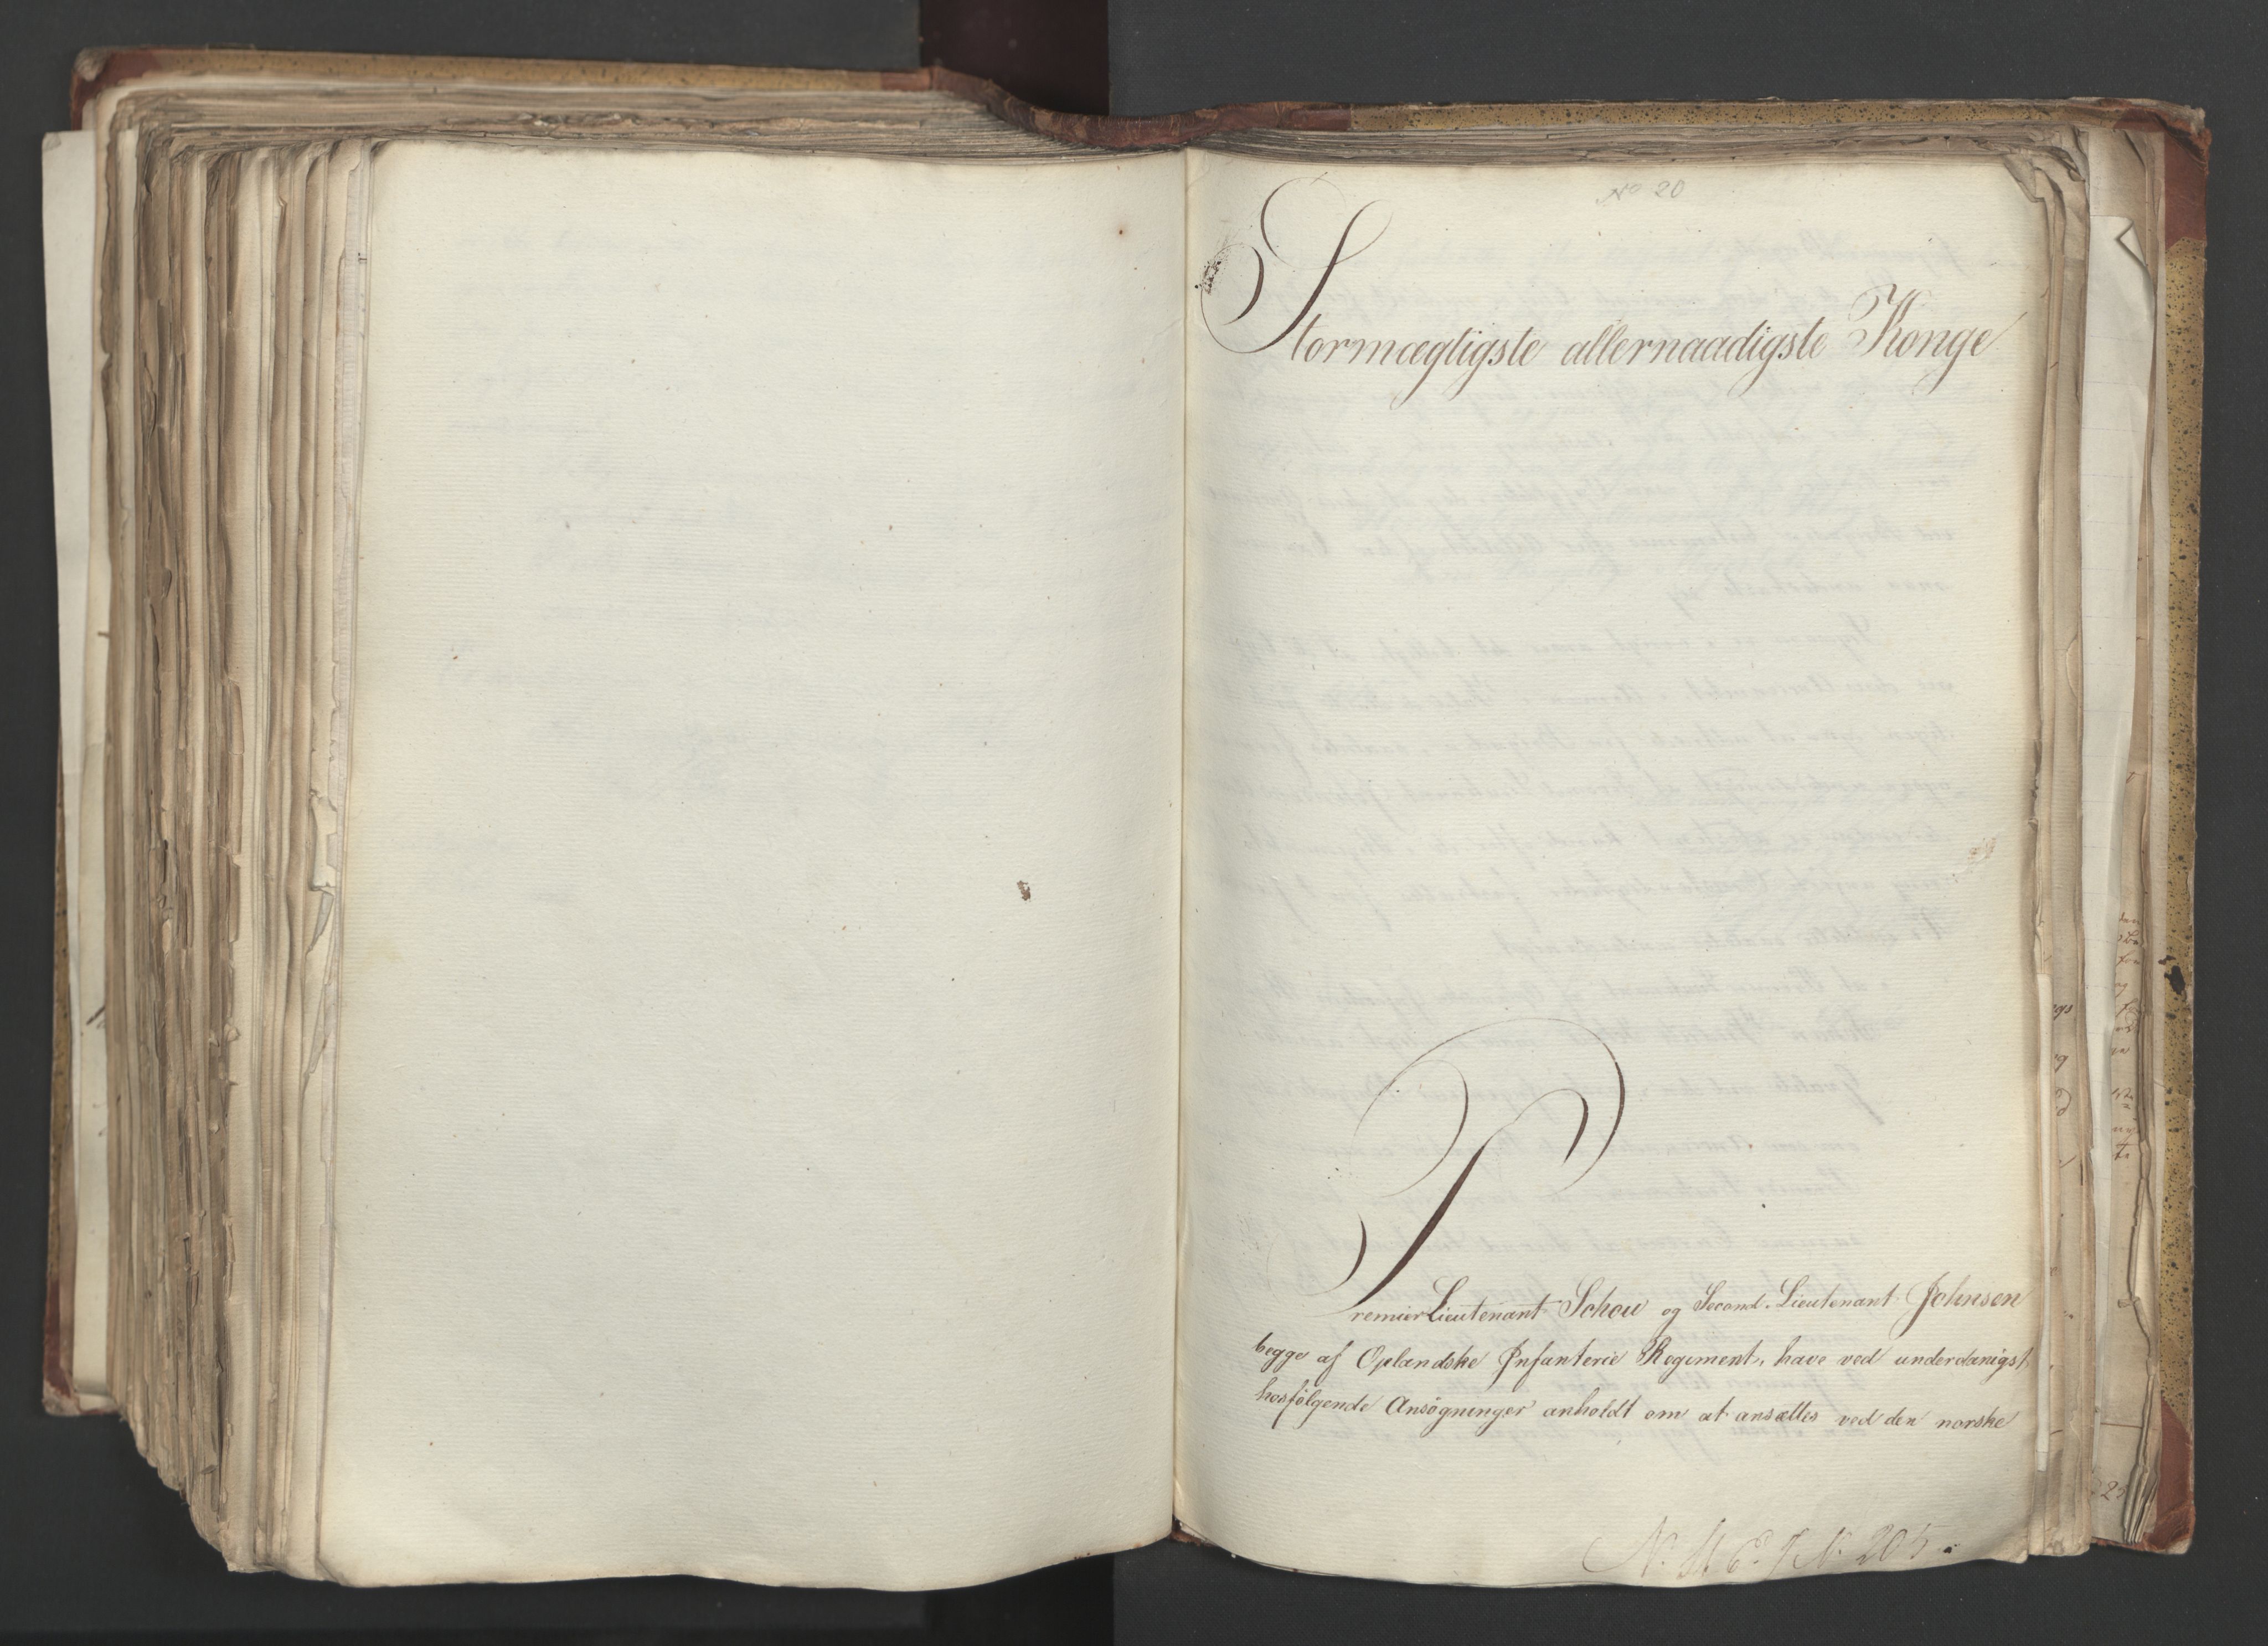 No 20
Stormægtigste allernaadigste Konge
PremierLieutenant Schou og Second-Lieutenant Johnsen
begge af Oplandske Infanterie Regiment, have ved underdanigst
hosfølgende Ansøgninger anholdt om at ansættes ved den norske
No 205.